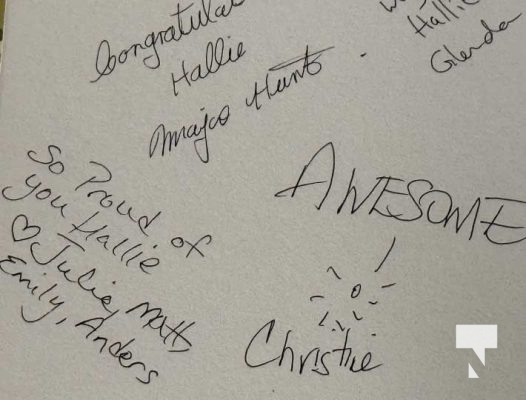 Congratulat
Hallie
Hunt
Hallie
Glenda
So Proud of
you Hallie
♡ Julie, Matt,
Emily, Anders
AWESOME!
Christie